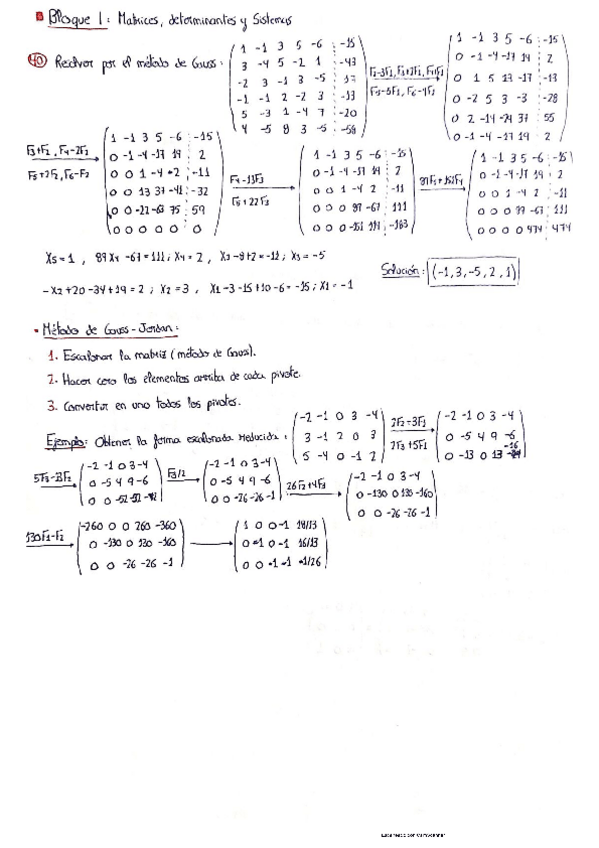 Bloque 1: Matrices, determinantes y Sistemas
40 Resolver por el método de Gauss:
1 -1 3 5 -6 -15
3 -4 5 -2 1 -43
-2 3 -1 3 -5 17
-1 -1 2 -2 3 -13
5 -3 1 -4 7 -20
4 -5 8 3 -5 -58
F2-3F1, F3+2F1, F4+F1
F5-5F1, F6-4F1
1 -1 3 5 -6 -15
0 -1 -4 -17 19 2
0 1 5 13 -17 -13
0 -2 5 3 -3 -28
0 2 -14 -29 37 55
0 -1 -4 -17 19 2
F3+F2, F4-2F2
F5+2F2, F6-F2
1 -1 3 5 -6 -15
0 -1 -4 -17 19 2
0 0 1 -4 2 -11
0 0 13 37 -41 -32
0 0 -22 -63 75 59
0 0 0 0 0 0
F4-13F3
F5+22F3
1 -1 3 5 -6 -15
0 -1 -4 -17 19 2
0 0 1 -4 2 -11
0 0 0 89 -67 111
0 0 0 -151 119 -183
89F5+151F4
1 -1 3 5 -6 -15
0 -1 -4 -17 19 2
0 0 1 -4 2 -11
0 0 0 89 -67 111
0 0 0 0 474 474
X5=1 , 89X4-67=111; X4=2 , X3-8+2=-11; X3=-5
-X2+20-34+19=2 ; X2=3 , X1-3-15+10-6=-15; X1=-1
Solución: (-1,3,-5,2,1)
• Método de Gauss-Jordan:
1. Escalonar la matriz (método de Gauss).
2. Hacer cero los elementos arriba de cada pivote.
3. Convertir en uno todos los pivotes.
Ejemplo: Obtener la forma escalonada reducida:
-2 -1 0 3 -4
3 -1 2 0 3
5 -4 0 -1 2
2F2+3F1
2F3+5F1
-2 -1 0 3 -4
0 -5 4 9 -6
0 -13 0 13 -16
5F3-13F2
-2 -1 0 3 -4
0 -5 4 9 -6
0 0 -52 -52 -2
F3/2
-2 -1 0 3 -4
0 -5 4 9 -6
0 0 -26 -26 -1
26F2+4F3
-2 -1 0 3 -4
0 -130 0 130 -160
0 0 -26 -26 -1
130F1-F2
-260 0 0 260 -360
0 -130 0 130 -160
0 0 -26 -26 -1
1 0 0 -1 18/13
0 1 0 -1 16/13
0 0 1 1 1/26